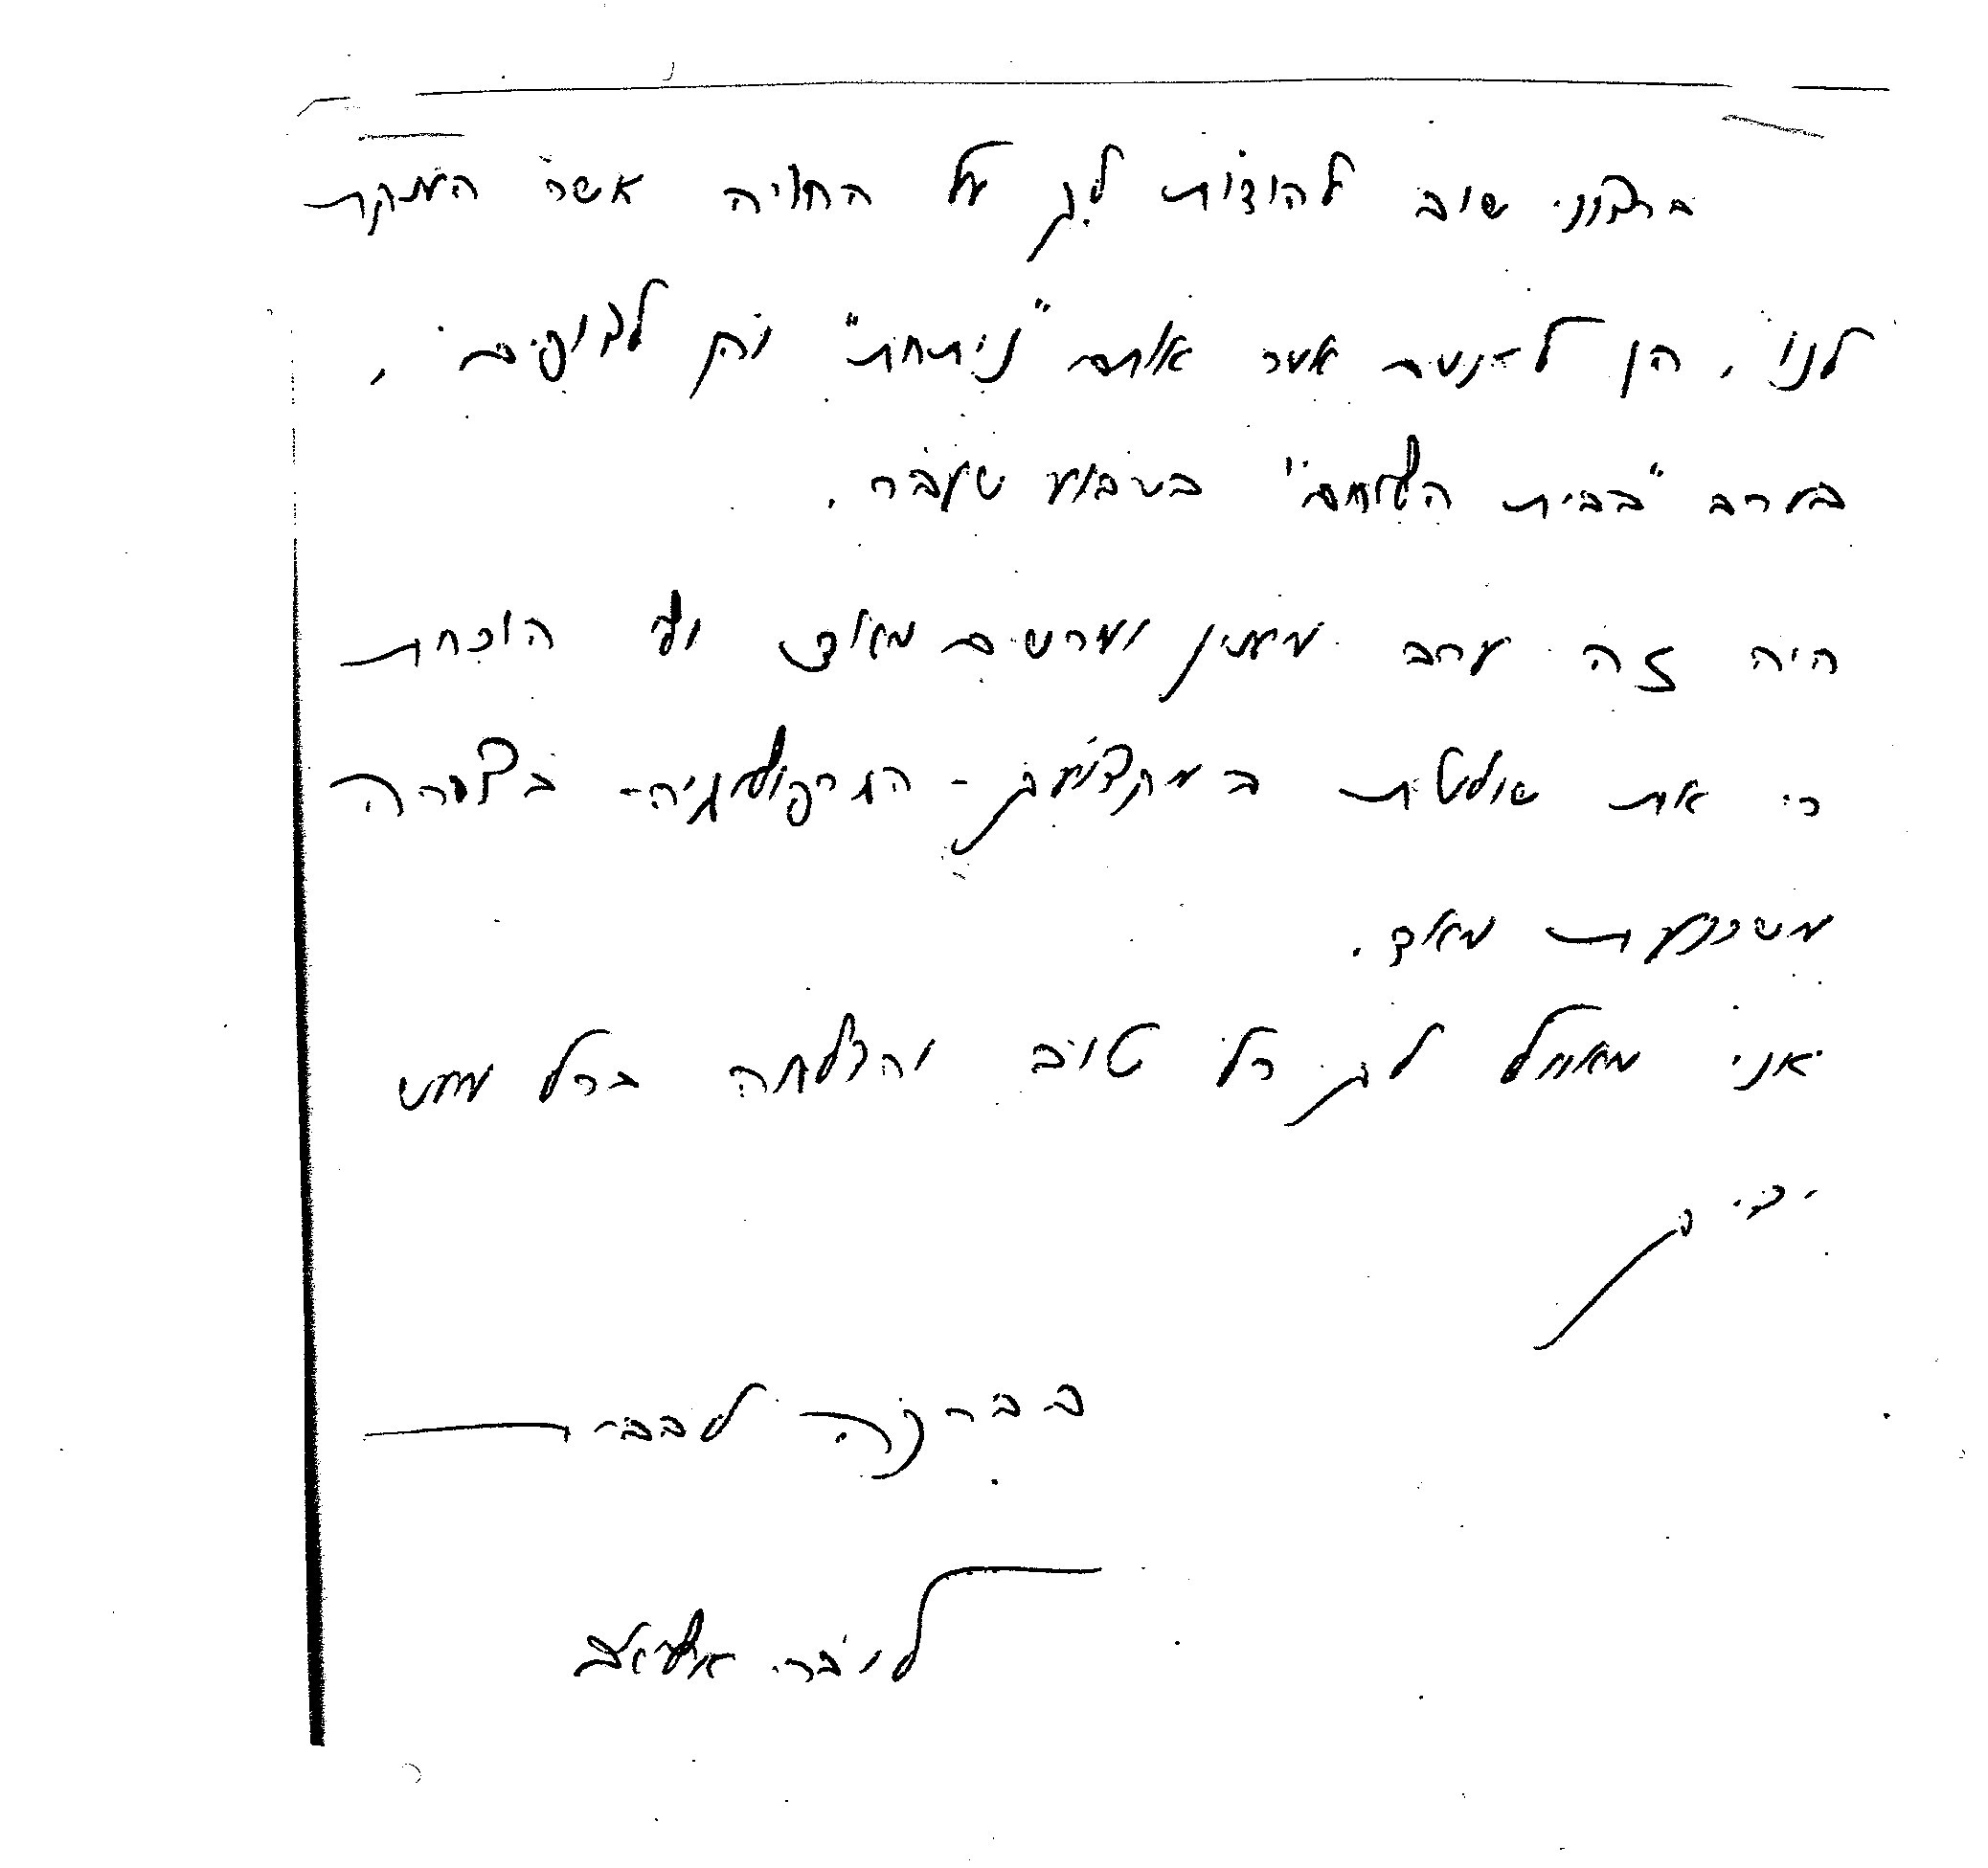 ברצוני שוב להודות לך על החויה אשר הענקת
לנו, הן לאנשים אשר אותם "ניתחת" והן לצופים,
בערב "בבית הלוחם" בשבוע שעבר.
היה זה ערב מענין ומרשים מאד ולי הוכחת
כי את שולטת במקצועך - הגרפולוגיה - בצורה
משכנעת מאד.
אני מאחל לך כל טוב והצלחה בכל מעש
ידיך
בברכה לבבית